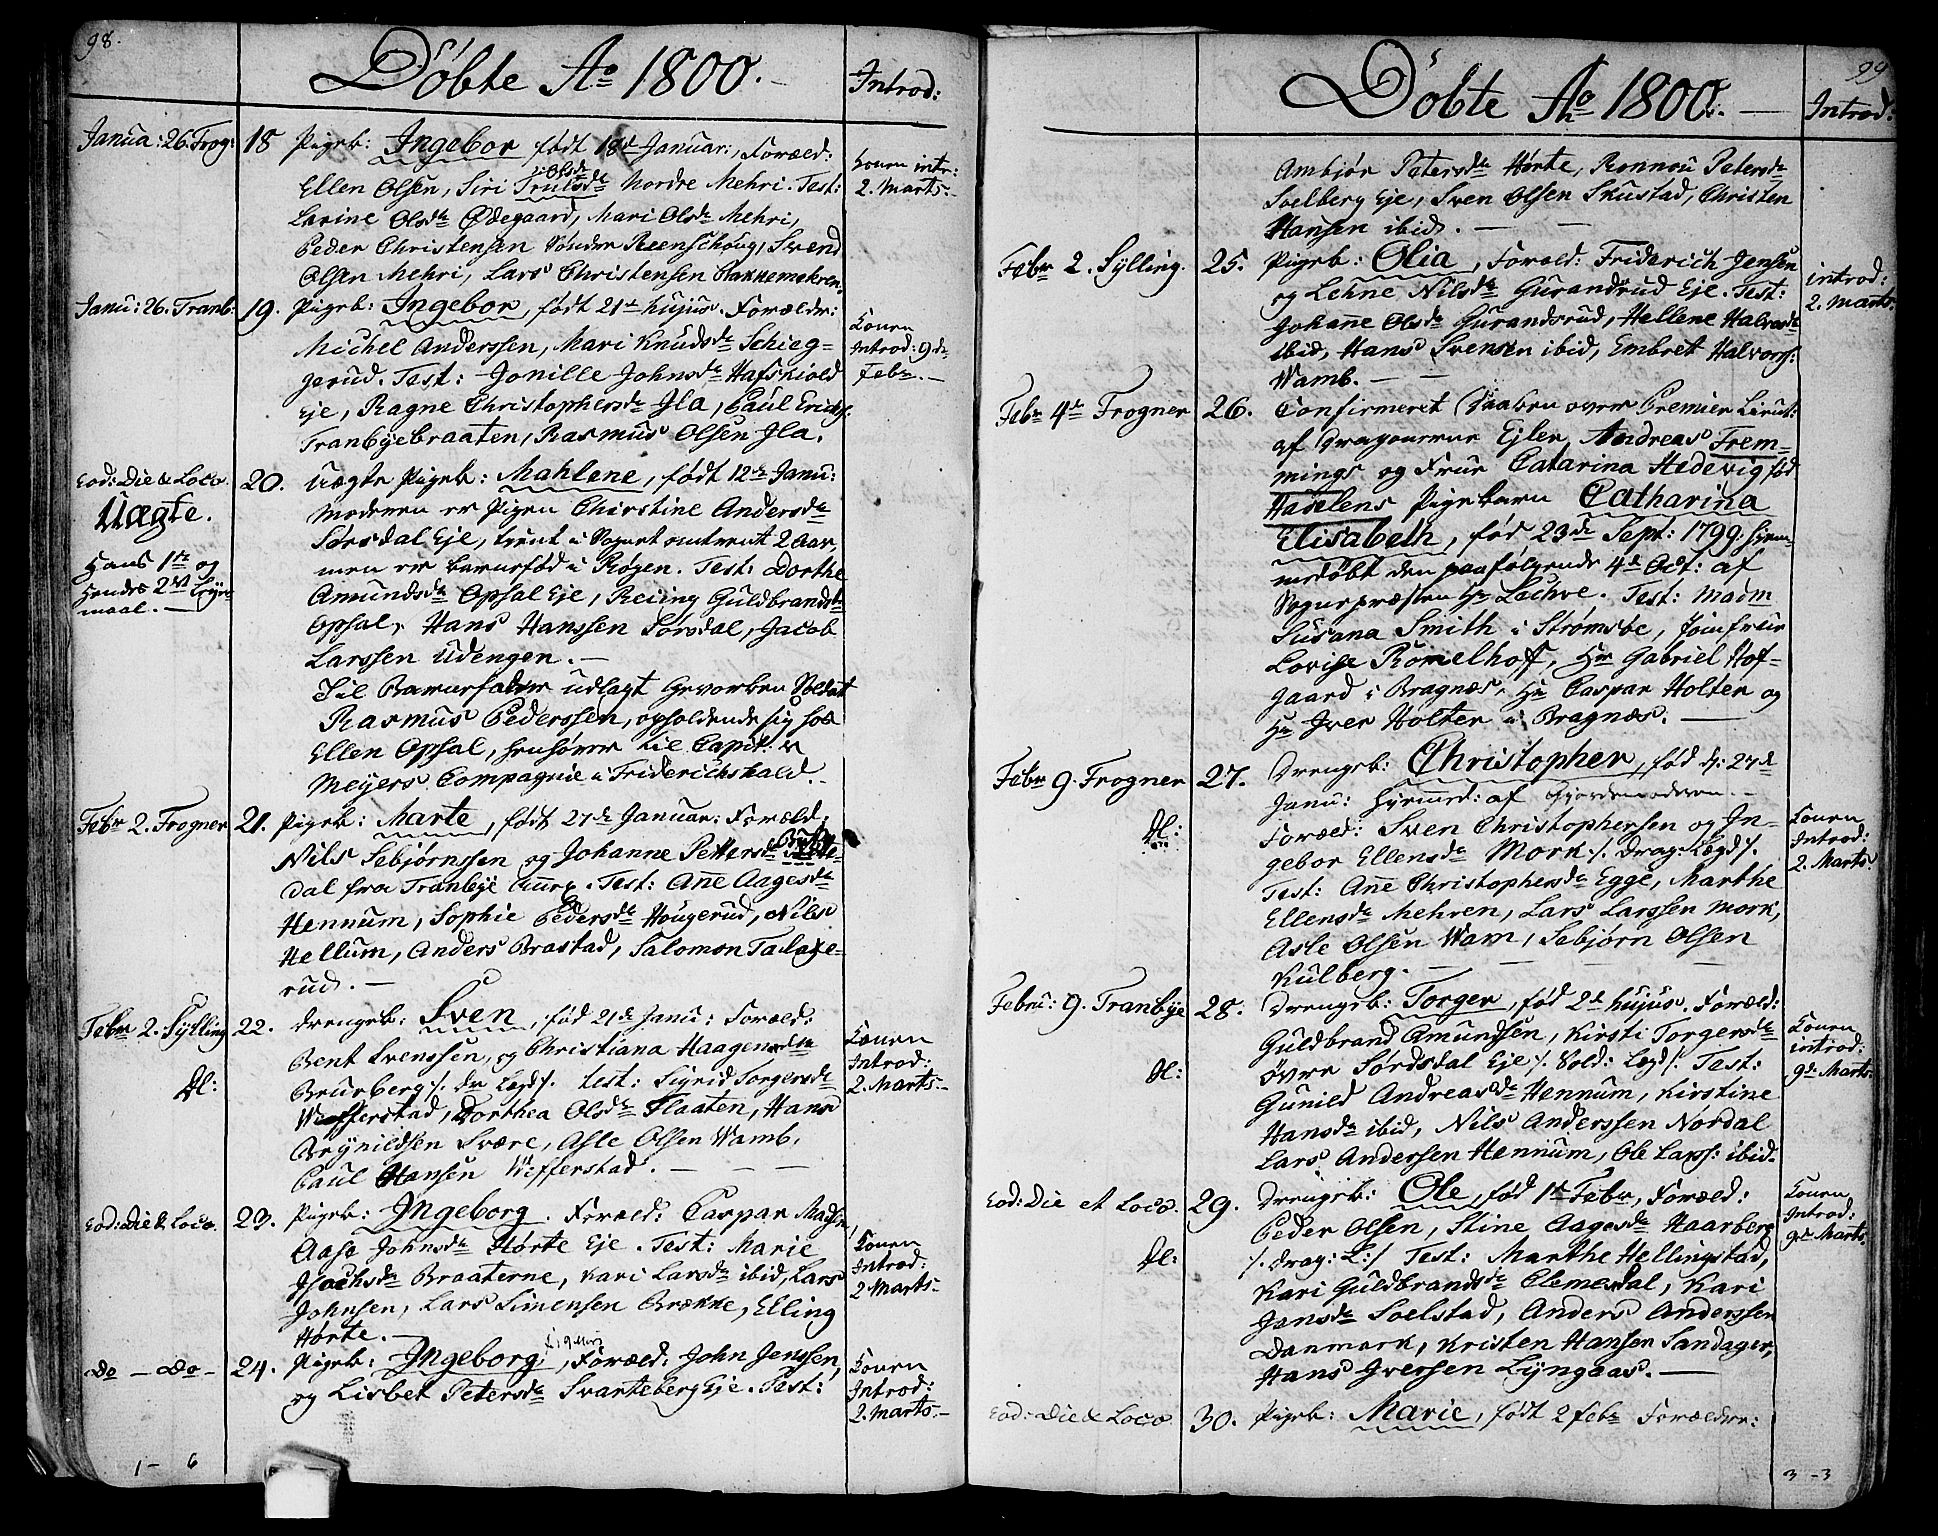 98.
Döbte Ao 1800.
Introd:
Janua: 26. Frog: 18 Pigeb: Ingebor født 18de Januar:, Foræld:
Ellen Olsen, Siri Trulsde Olsde Nordre Mehri. Test:
Lavine Olsde Ødegaard, Mari Olsde Mehri,
Peder Christensen Sönder Reenschoug, Svend
Olsen Mehri, Lars Christensen Bakkemehren.
Konen intr:
2. Marts.-
Janu: 26. Tranb: 19. Pigeb: Ingebor, født 21de hujus. Forælder:
Michel Anderssen, Mari Knudsde Schieg-
gerud. Test: Jonille Johnsde Hafskiold
Eje, Ragne Christophersde Jla, Paul Erichs:
Tranbyebraaten, Rasmus Olsen Jla.
Konen
Introd: 9de
Febr.-
Eod: Die & Loco. 20. Uægte Pigeb: Mahlene, født 12de Janu:
Uægte.
Hans 1te og
Hendes 2det Leyer-
maal.-
Moderen er Pigen Christine Andersde
Sørsdal Eje, tient i Sognet omtrent 2 Aar,
men er barnefød i Røgen. Test: Dorthe
Amundsde Opsal Eje, Reiing Guldbrandsde
Opsal, Hans Hanssen Sørsdal, Jacob
Larssen Udengen.-
Til Barnefader udlagt hvervben Soldat
Rasmus Pederssen, opholdende sig hos
Ellen Opsal, henhører til Capit: v
Meyers Compagnie i Friderichshald.-
Febr 2. Frogner 21. Pigeb: Marte, født 27de Januar: Foræld:
Nils Sebjørnssen og Johanne Pettersde
dal fra Tranbye Ann: . Test: Anne Aagesde
Hennum, Sophie Pedersde Hougerud, Nils
Hellum, Anders Brastad, Salomon Tadaxe-
rud.-
Febr 2. Sylling 22. Drengeb: Sven, fød 21de Janu: Foræld:
Bent Svenssen, og Christiana Haagensde
Dl: Brurberg /. Da Lægd /. Test: Sigrid Torgersde
Wefferstad, Dorthea Olsde Flaaten, Hans
Brynildsen Svære, Asle Olsen Wamb,
Paul Hansen Wefferstad.-
Konen
Introd:
2. Marts.-
Eod: Die & Loco. 23. Pigeb: Ingeborg. Foræld: Caspar Madsen,
Aase Johnsde Hörte Eje. Test: Marie
Jsachsde Braaterne, Kari Larsde ibid, Lars
Johnsen, Lars Simensen Brække, Elling
Hörte.-
Konen
Introd:
2 Marts.-
Do - Do - 24. Pigeb: Ingeborg, Foræld: John Jenssen,
og Lisbet Petersde Svarteberg Eje. Test:
Konen
Introd:
2. Marts.-
1 - 6
99
Döbte Ao 1800.
Introd:
Ambjör Petersde Hörte, Ronnou Petersde
Solberg Eje, Sven Olsen Skustad, Christen
Hansen ibid.
Febr 2. Sylling. 25. Pigeb: Olia, Foræld: Friderich Jensen
og Lehne Nilsde Gurandsrud Eje. Test:
Johanne Olsde Gurandsrud, Hellene Halvorsde
ibid, Hans Svensen ibid, Embret Halvors:
Wamb.
introd:
2. Marts.
Febr 4de Frogner 26. Confirmeret Daaben over Premier Lieut:
af Dragonerne Ejler Andreas Frem-
mings og Frue Catarina Hedevig fød
Haselens Pigebarn Catharina
Elisabeth, fød 23de Sept: 1799. hjem-
medöbt den paafölgende 4de Oct: af
Sognepræsten Hr Lochve. Test: Madm
Susana Smith i Strömsöe, Jomfrue
Lovise Römelhoff, Hr Gabriel Hof-
gaard i Bragnæs, Hr Caspar Holter og
Hr Jver Holter i Bragnæs.
Febr 9. Frogner 27. Drengeb: Christopher, fød d: 27de
Janu: Hjemmed: af Gjordemoderen.
Dl: Foræld: Sven Christophersen og In-
gebor Ellensde Mork /. Drag: Lægd /.
Test: Anne Christophersde Egge, Marthe
Ellensde Mehren, Lars Larssen Mork,
Asle Olsen Wam, Sebjörn Olsen
Kulberg.
Konen
Introd:
2. Marts
Febru: 9. Tranbye 28. Drengeb: Torger, fød 2de hujus. Foræld:
Guldbrand Amundssen, Kirsti Torgersde
Dl: övre Sørdsdal Eje /. Sold: Lægd /. Test:
Gunild Andreasde Hennum, Kirstine
Hansde ibid, Nils Anderssen Nordal
Lars Andersen Hennum, Ole Larss: ibid.
Konen
introd:
9de Marts
Eod: Die et Loco. 29. Drengeb: Ole, fød 1te Febr, Foræld:
Peder Olsen, Stine Aagesde Haarberg
Dl: /. Drag: L: / Test: Marthe Hellingstad,
Kari Guldbrandsde Clemesdal, Kari
Jensde Soelstad, Anders Anderssen
Danmark, Kristen Hansen Sandager,
Hans Jversen Lyngaas.
Konen
Introd:
9de Marts
Eod: Die & Loco. 30. Pigeb: Marie, født 2 Febr Forældre:
3 - 3